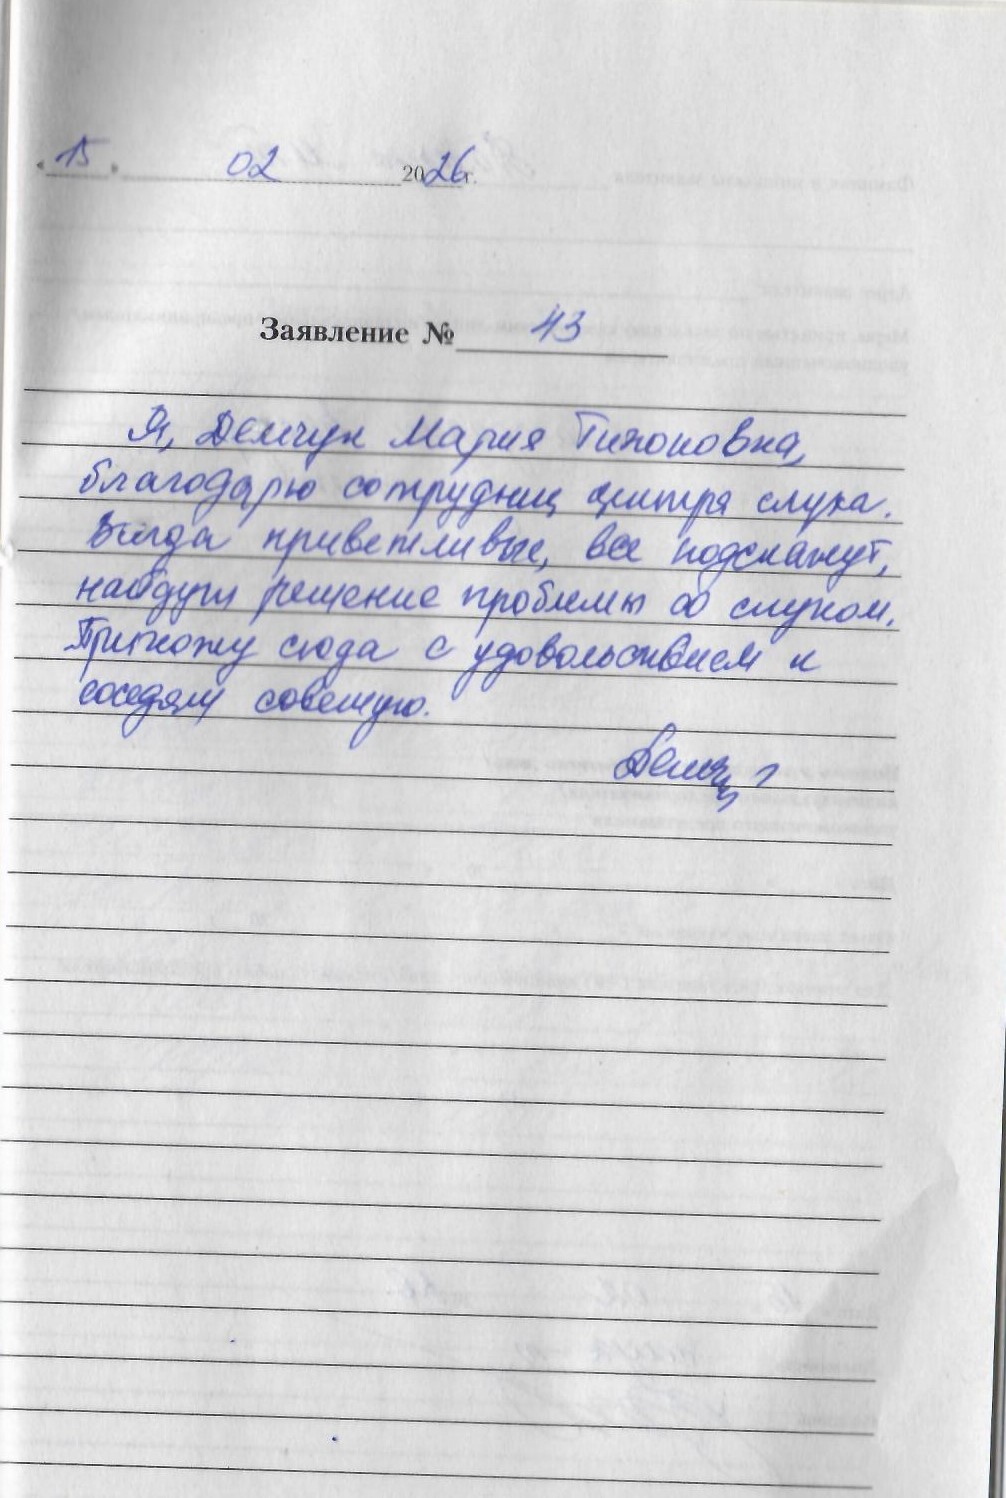 « 15 » 02 2026г.
Заявление № 43
Я, Демчук Мария Тихоновна,
благодарю сотрудниц центра слуха.
Всегда приветливые, все подскажут,
найдут решение проблемы со слухом.
Прихожу сюда с удовольствием и
соседям советую.